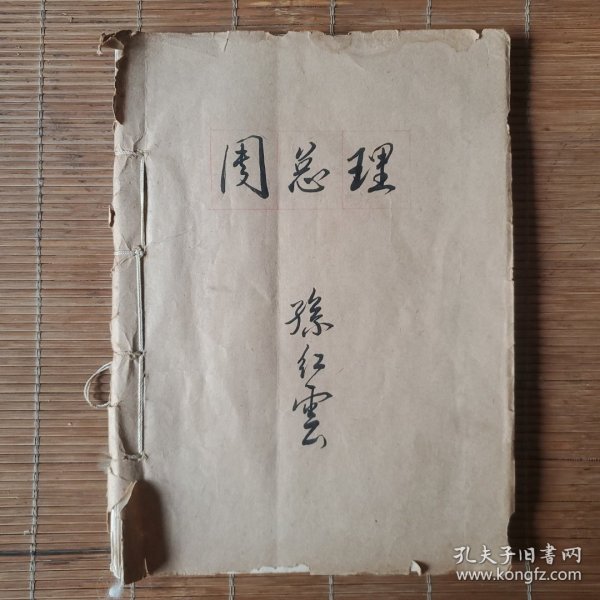 周总理
孫红雲
孔夫子旧书网
www.kongfz.com